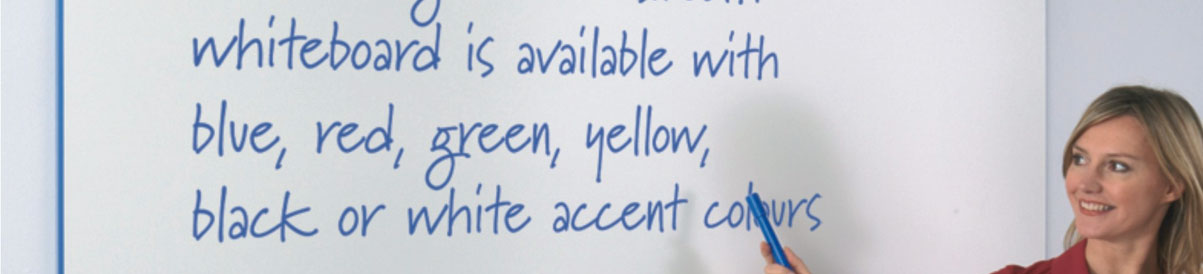 whiteboard is available with
blue, red, green, yellow,
black or white accent colours